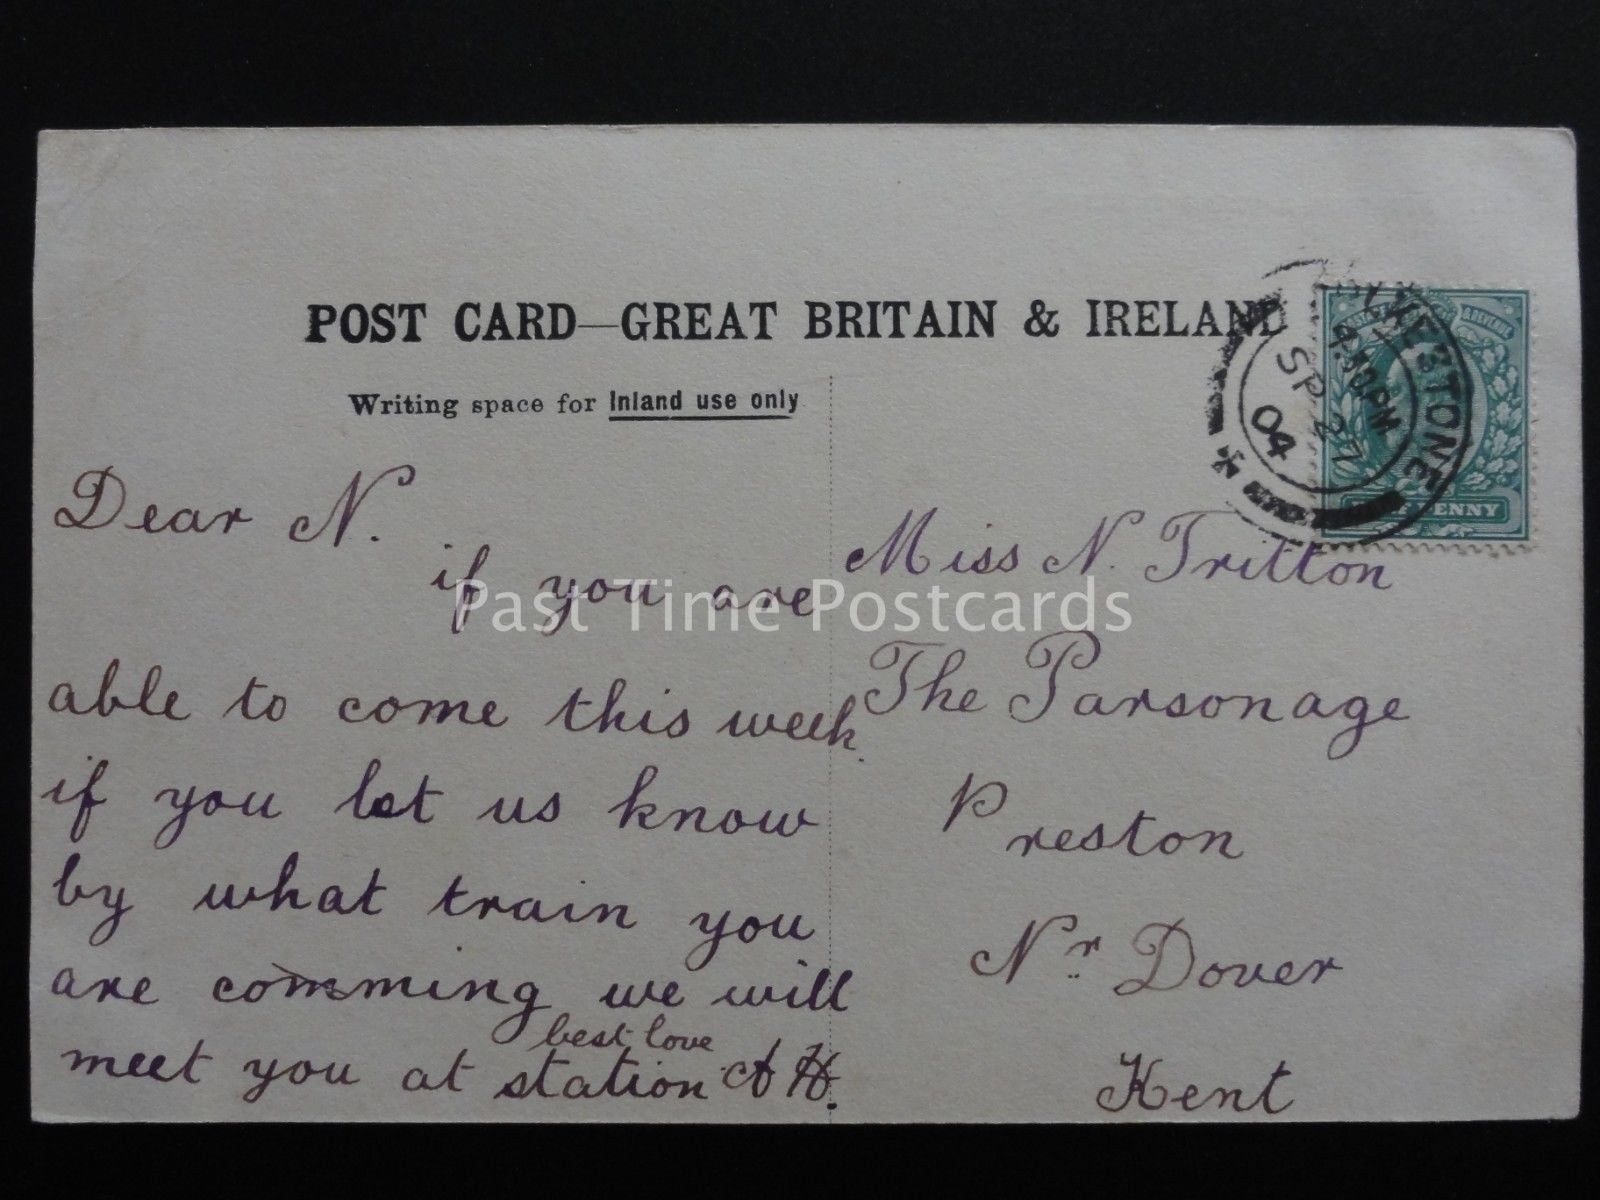 POST CARD—GREAT BRITAIN & IRELAND
Writing space for Inland use only
Dear N.
if you are
able to come this week
if you let us know
by what train you
are comming we will
meet you at station
best love
A H.
Miss N. Tritton
The Parsonage
Preston
Nr Dover
Kent
4.30PM
SP 27
04
PENNY
Past Time Postcards